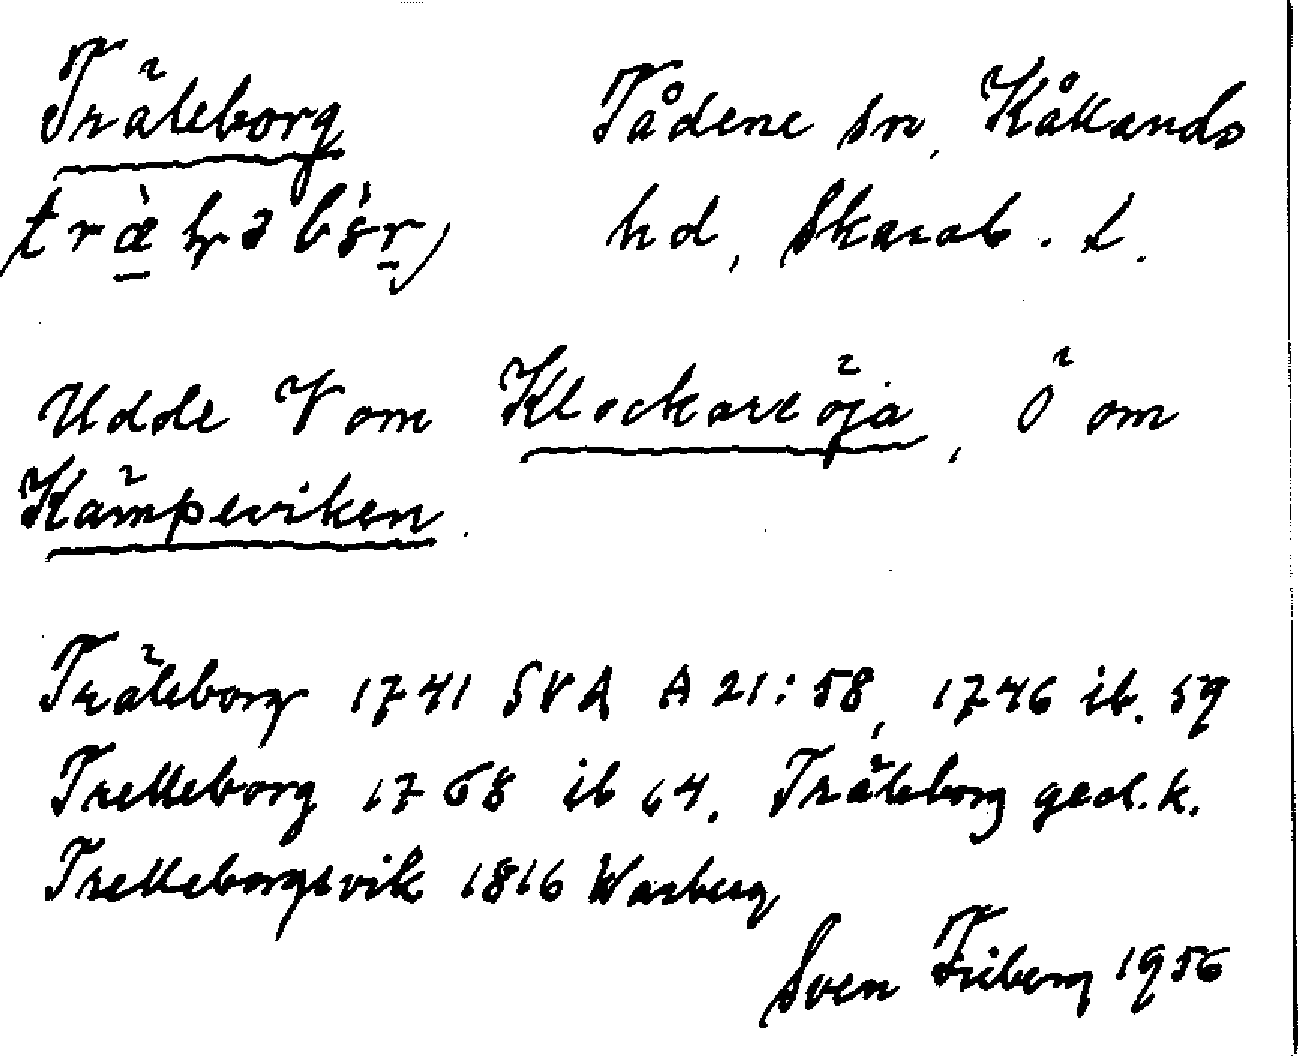 Träleborg Tådene sn, Kållands
hd, Skarab. L.
Udde V om Klockareöja, Ö om
Kämpeviken.
Träleborg 1741 SVA A21:58, 1746 ib. 59
Trelleborg 1768 ib 64. Träleborg geol.k.
Trelleborgsvik 1816 Warberg
Sven Friberg 1956